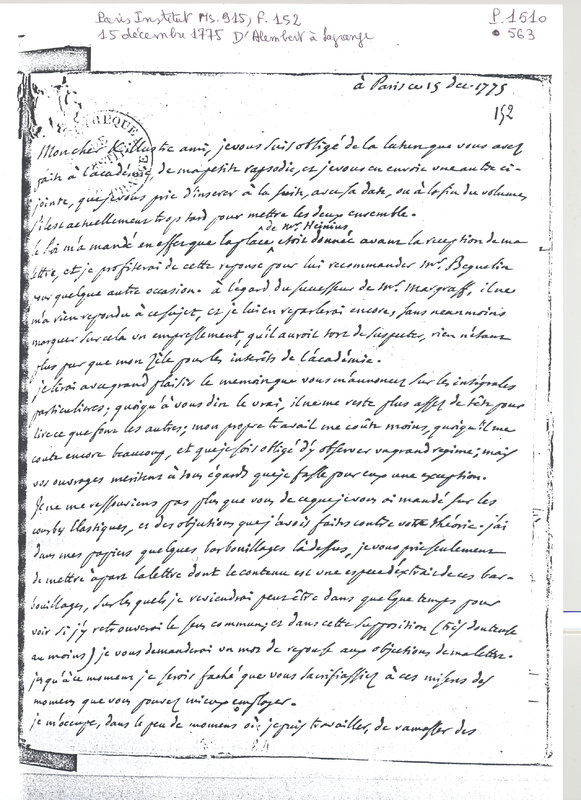 Paris Institut Ms. 915, f. 152
P. 1610
15 décembre 1775 D'Alembert à Lagrange
563
à Paris ce 15 dec. 1775
152
Mon cher & illustre ami, je vous suis obligé de la lecture que vous avez
faite à l'académie, de ma petite rapsodie, et je vous en envoie une autre ci-
jointe, que je vous prie d'inserer à la suite, avec sa date, ou à la fin du volume,
s'il est actuellement trop tard pour mettre les deux ensemble.
de Mr. Heinius
le Roi m'a mandé en effet que la place etoit donnée avant la reception de ma
lettre, et je profiterai de cette reponse pour lui recommander Mr. Beguelin
pour quelque autre occasion. à l'égard du successeur de Mr. Margraff, il ne
m'a rien repondu à ce sujet, et je lui en reparlerai encore, sans neanmoins
marquer sur cela un empressement, qu'il auroit tort de suspecter, rien n'étant
plus pur que mon zèle pour les intérêts de l'académie.
je lirai avec grand plaisir le memoire que vous m'annoncez sur les intégrales
particulieres; quoiqu'à vous dire le vrai, il ne me reste plus assez de tête pour
lire ce que font les autres; mon propre travail me coûte moins, quoiqu'il me
coute encore beaucoup, et que je sois obligé d'y observer un grand regime; mais
vos ouvrages meritent à tous égards que je fasse pour eux une exception.
Je ne me ressouviens pas plus que vous de ce que je vous ai mandé sur les
courbes elastiques, et des objections que j'avois faites contre votre théorie. j'ai
dans mes papiers quelques barbouillages là dessus, je vous prie seulement
de mettre à part la lettre dont le contenu est une espece d'extrait de ces bar-
bouillages, sur lesquels je reviendrai peut être dans quelque temps pour
voir si j'y retrouverai le sens commun; et dans cette supposition (très douteuse
au moins) je vous demanderai un mot de reponse aux objections de ma lettre.
jusqu'à ce moment je serois faché que vous sacrifiassiez à ces miseres des
momens que vous pouvez mieux employer.
je m'occupe, dans le peu de momens où je puis travailler, de ramasser des